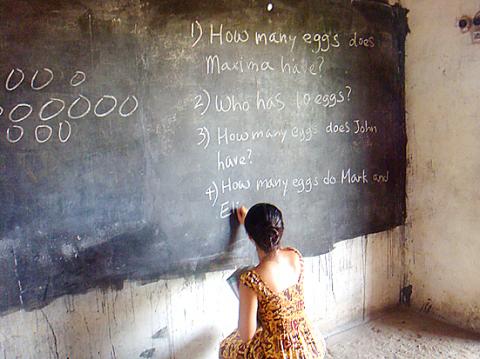 1) How many eggs does
Maxima have?
2) Who has 10 eggs?
3) How many eggs does John
have?
4) How many eggs do Mark and
Eli